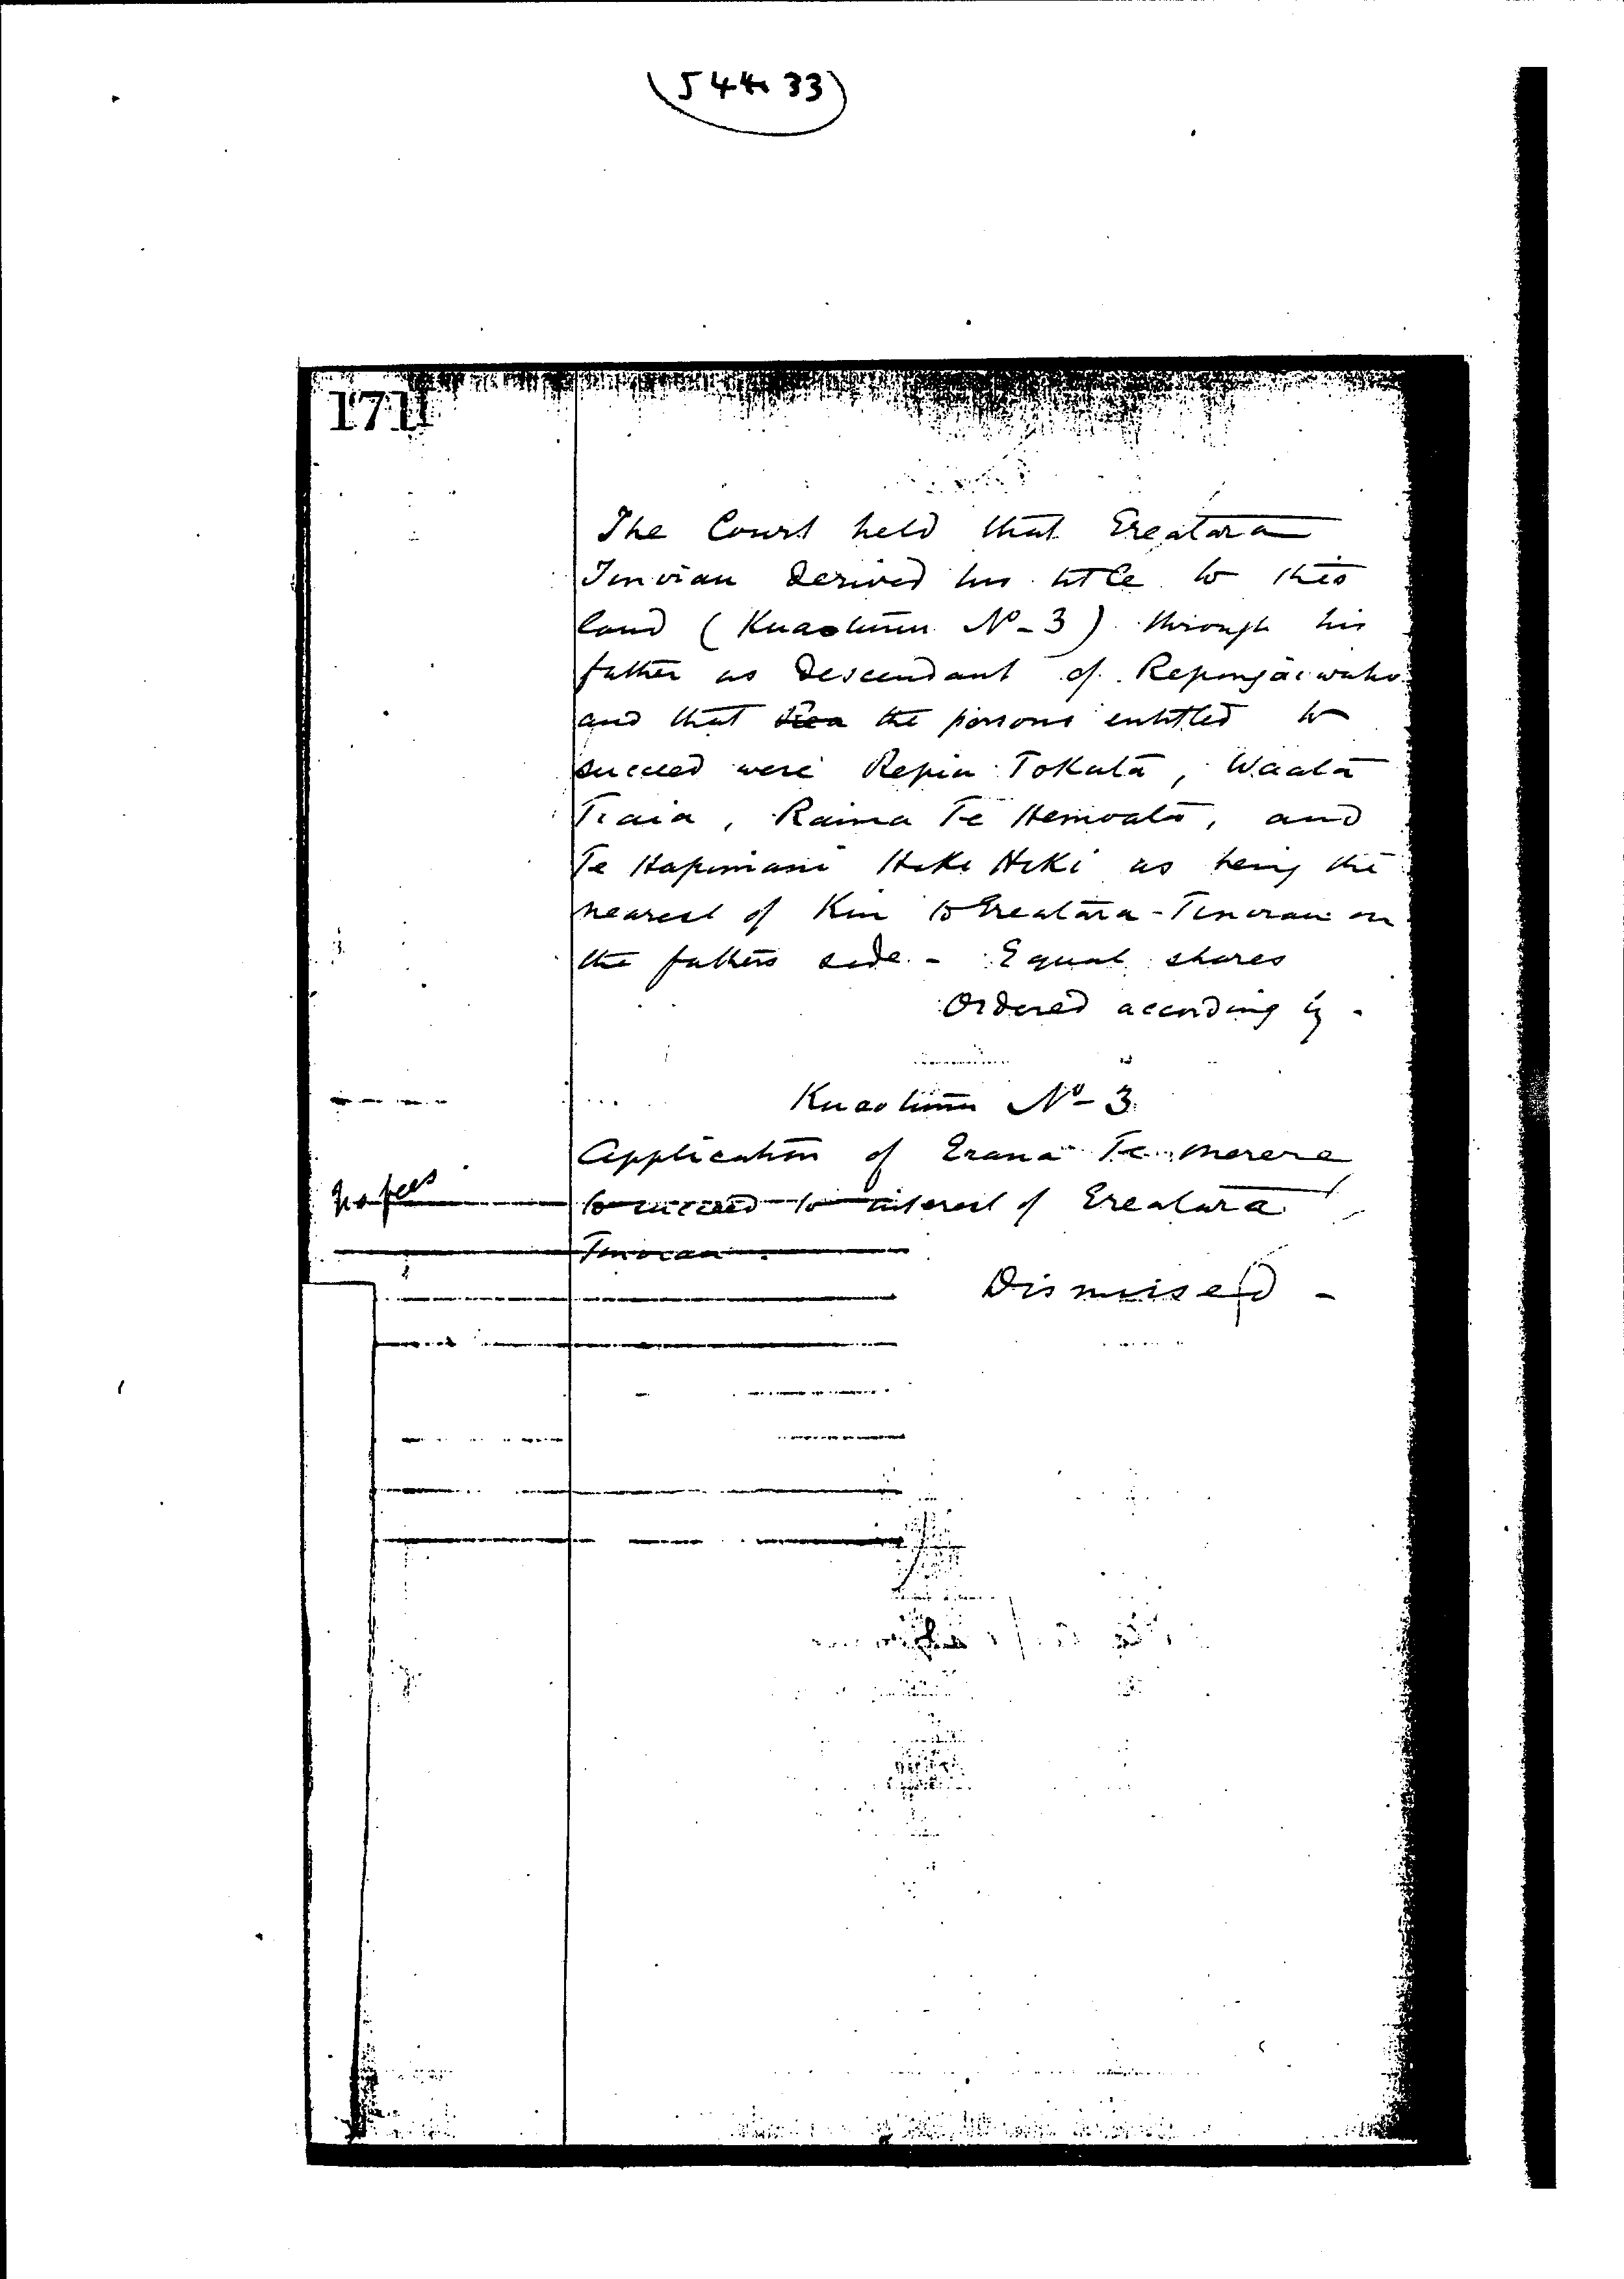 (544 33)
171
The Court held that Ereatara
Tinorau derived his title to this
land (Kuaotunu No-3) through his
father as descendant of Repongaiwaho
and that the persons entitled to
succeed were Repia Tokata, Waata
Tiaia, Raima Te Hemoata, and
Te Hapimana Heke Heke as being the
nearest of Kin to Ereatara-Tinorau on
the fathers side - Equal shares
Ordered accordingly -
Kuaotunu No-3
Application of Erana Te Morere
No fees
to succeed to interest of Ereatara
Tinorau.
Dismissed -